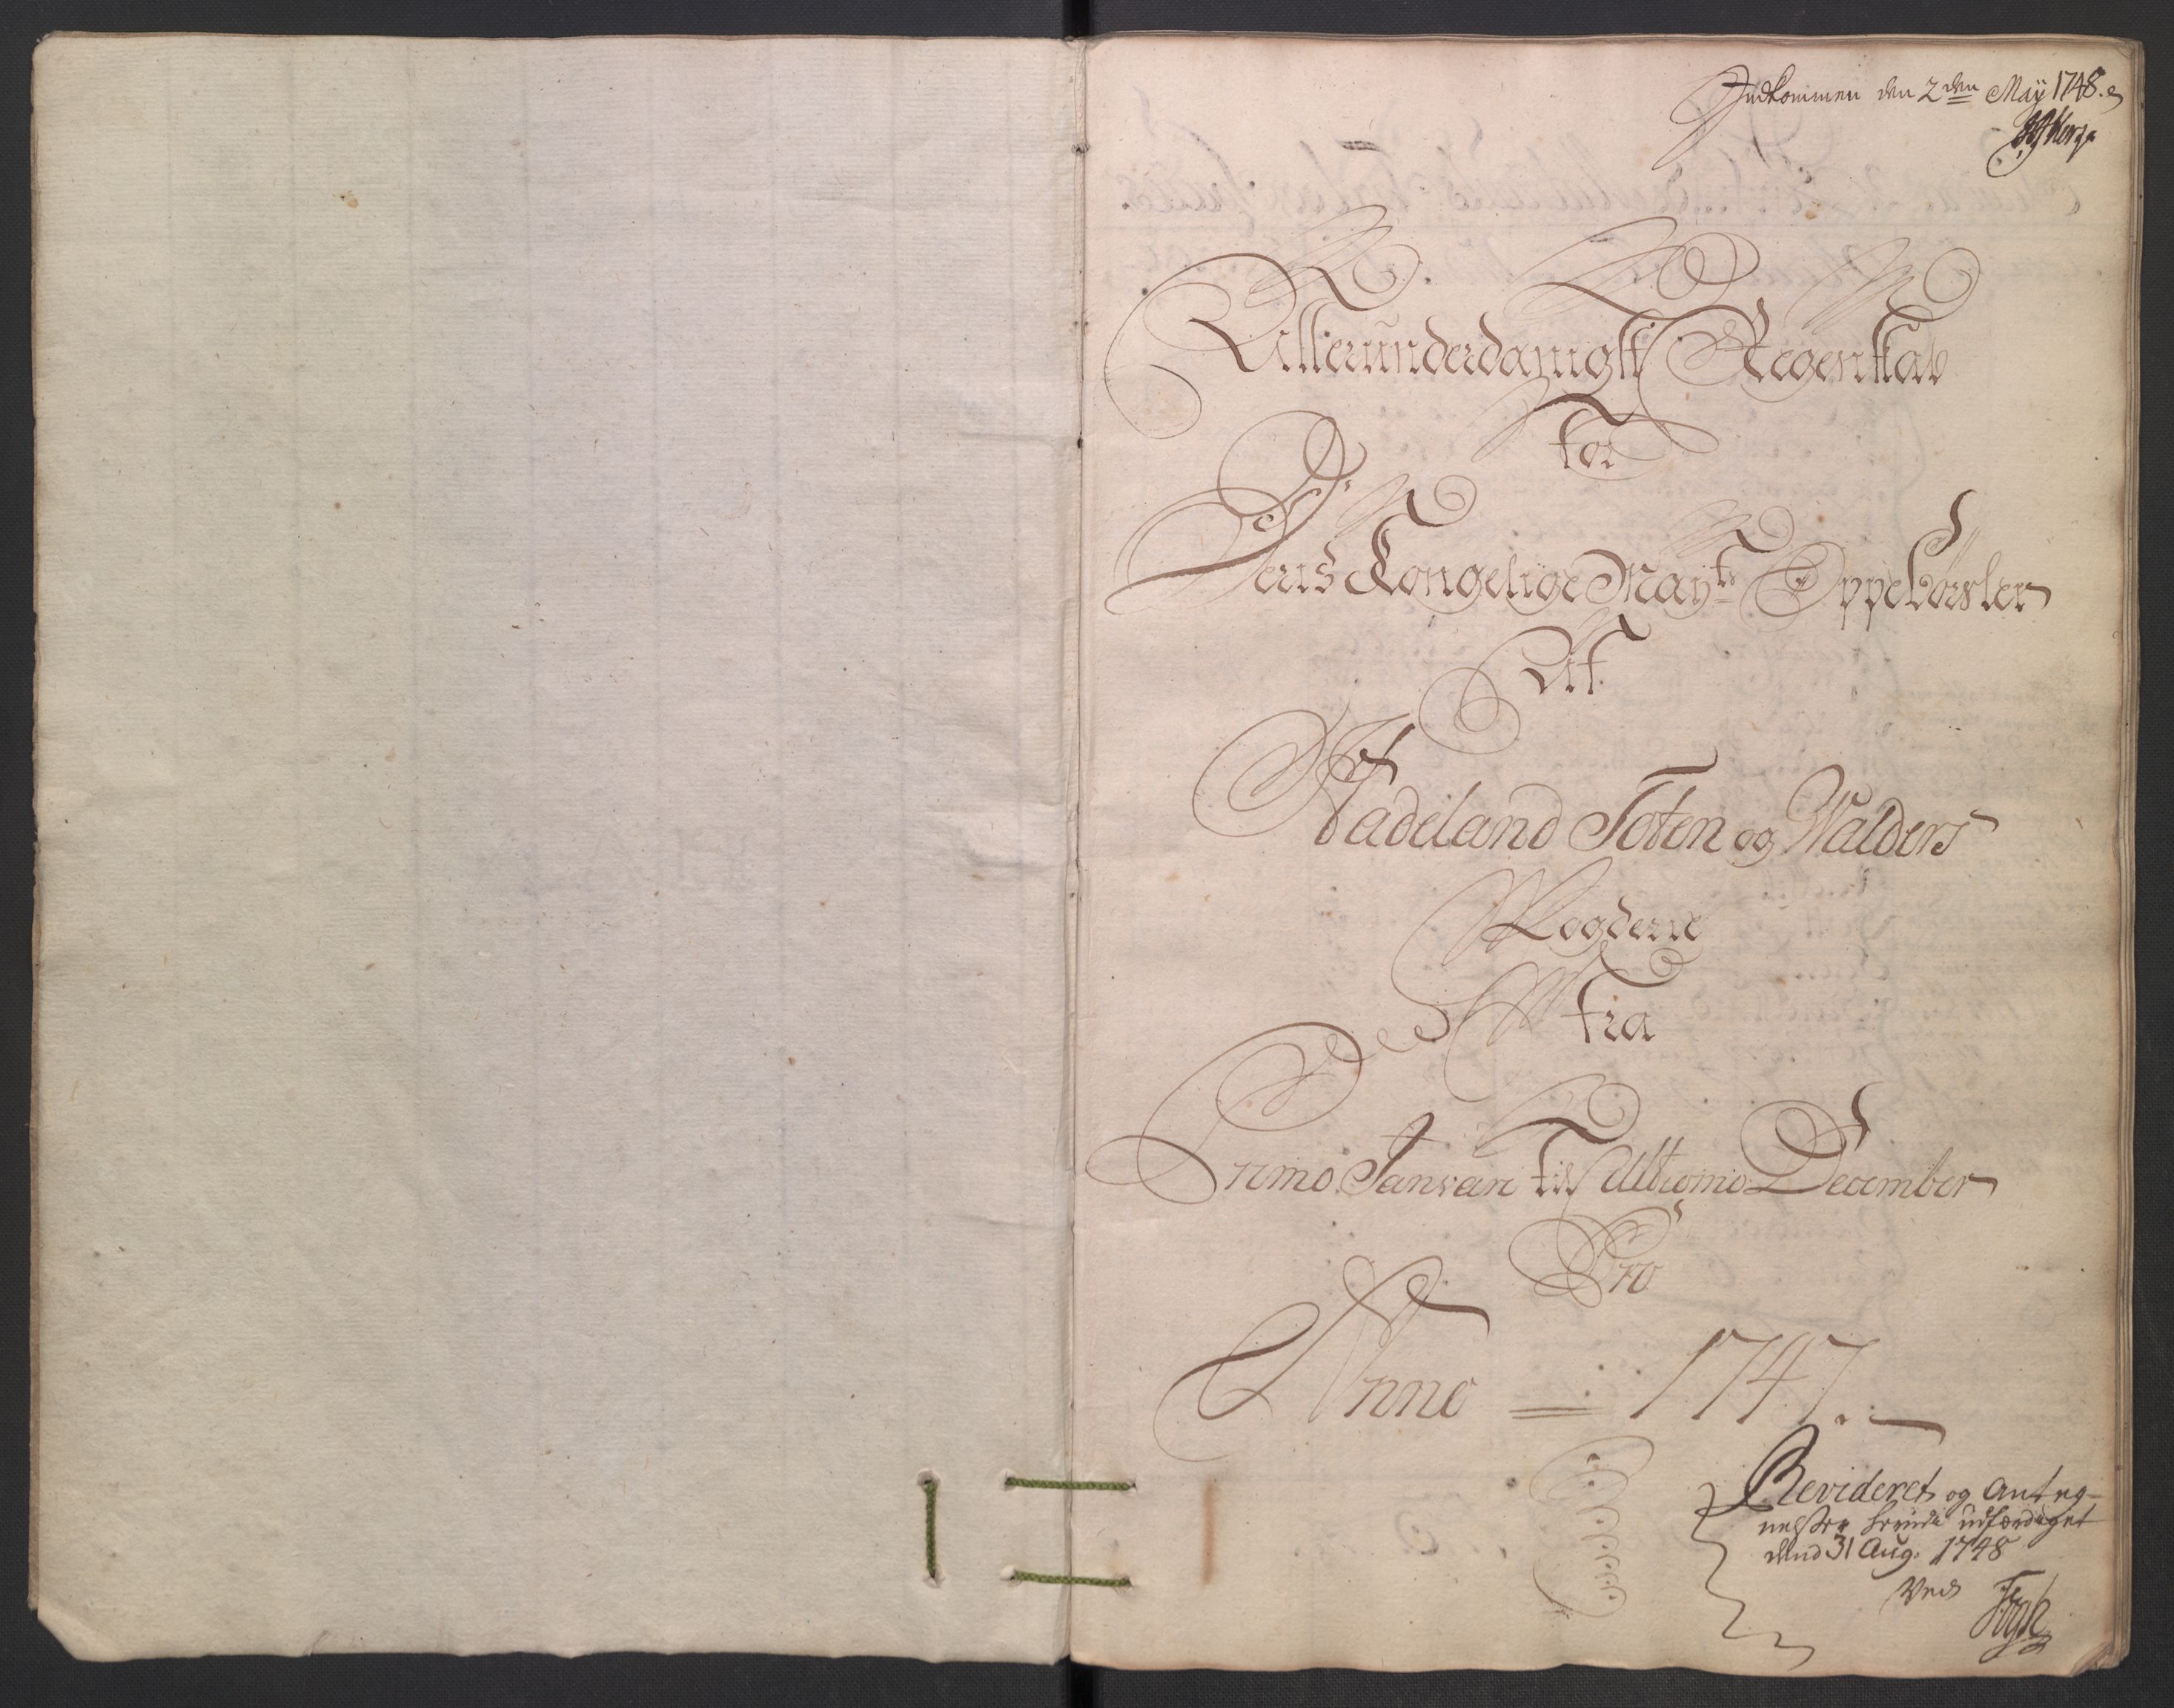 Indkommen den 2den Maÿ 1748.
Allerunderdanigst Regenskab
For
Deris Kongelige Maÿts Oppebørsler
Af
Hadeland Toten og Walders
Fogderie
Fra
Primo Januari til Ultimo December
Pro
Anno = 1747.
Revideret og Anteg-
nelser herudi udfærdiget
dend 31 Aug: 1748
Ved